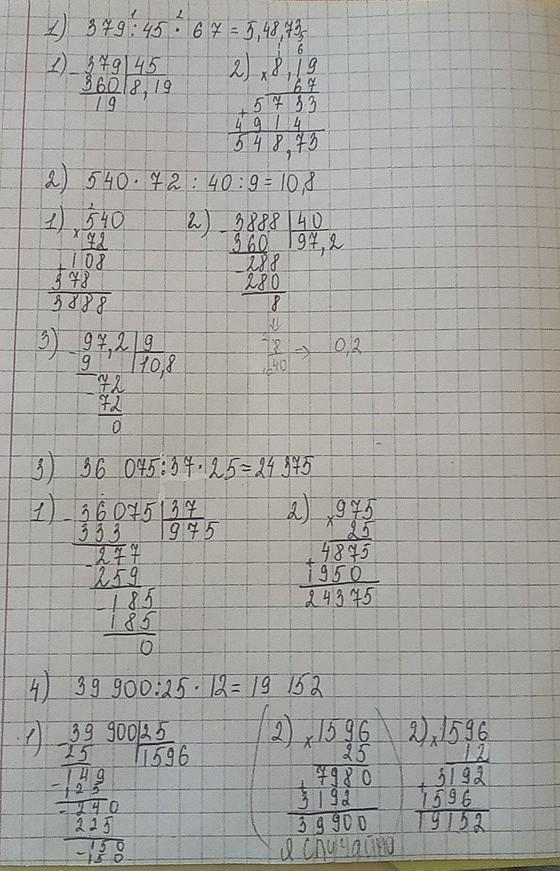 1) 379 : 45 · 67 = 5,48,73
1) - 379 | 45
360 | 8,19
19
2) × 8,19
67
+ 5733
4914
548,73
2) 540 · 72 : 40 : 9 = 10,8
1) × 540
72
+ 108
378
3888
2) - 3888 | 40
360 | 97,2
- 288
280
8
3) - 97,2 | 9
9 | 10,8
- 72
72
0
8
40 => 0,2
3) 36 075 : 37 · 25 = 24375
1) - 36075 | 37
333 | 975
- 277
259
- 185
185
0
2) × 975
25
+ 4875
1950
24375
4) 39 900 : 25 · 12 = 19 152
1) - 39 900 | 25
25 | 1596
- 149
125
- 240
225
- 150
150
2) × 1596
25
+ 7980
3192
39900
я случайно
2) × 1596
12
+ 3192
1596
19152